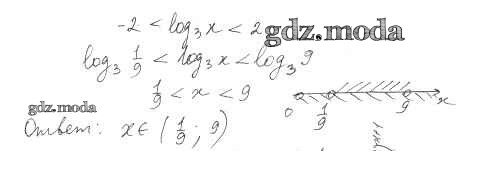 -2 < log₃x < 2 gdz.moda
log₃ 1/9 < log₃x < log₃ 9
1/9 < x < 9
0 1/9 9 x
gdz.moda
Ответ: x ∈ (1/9; 9)